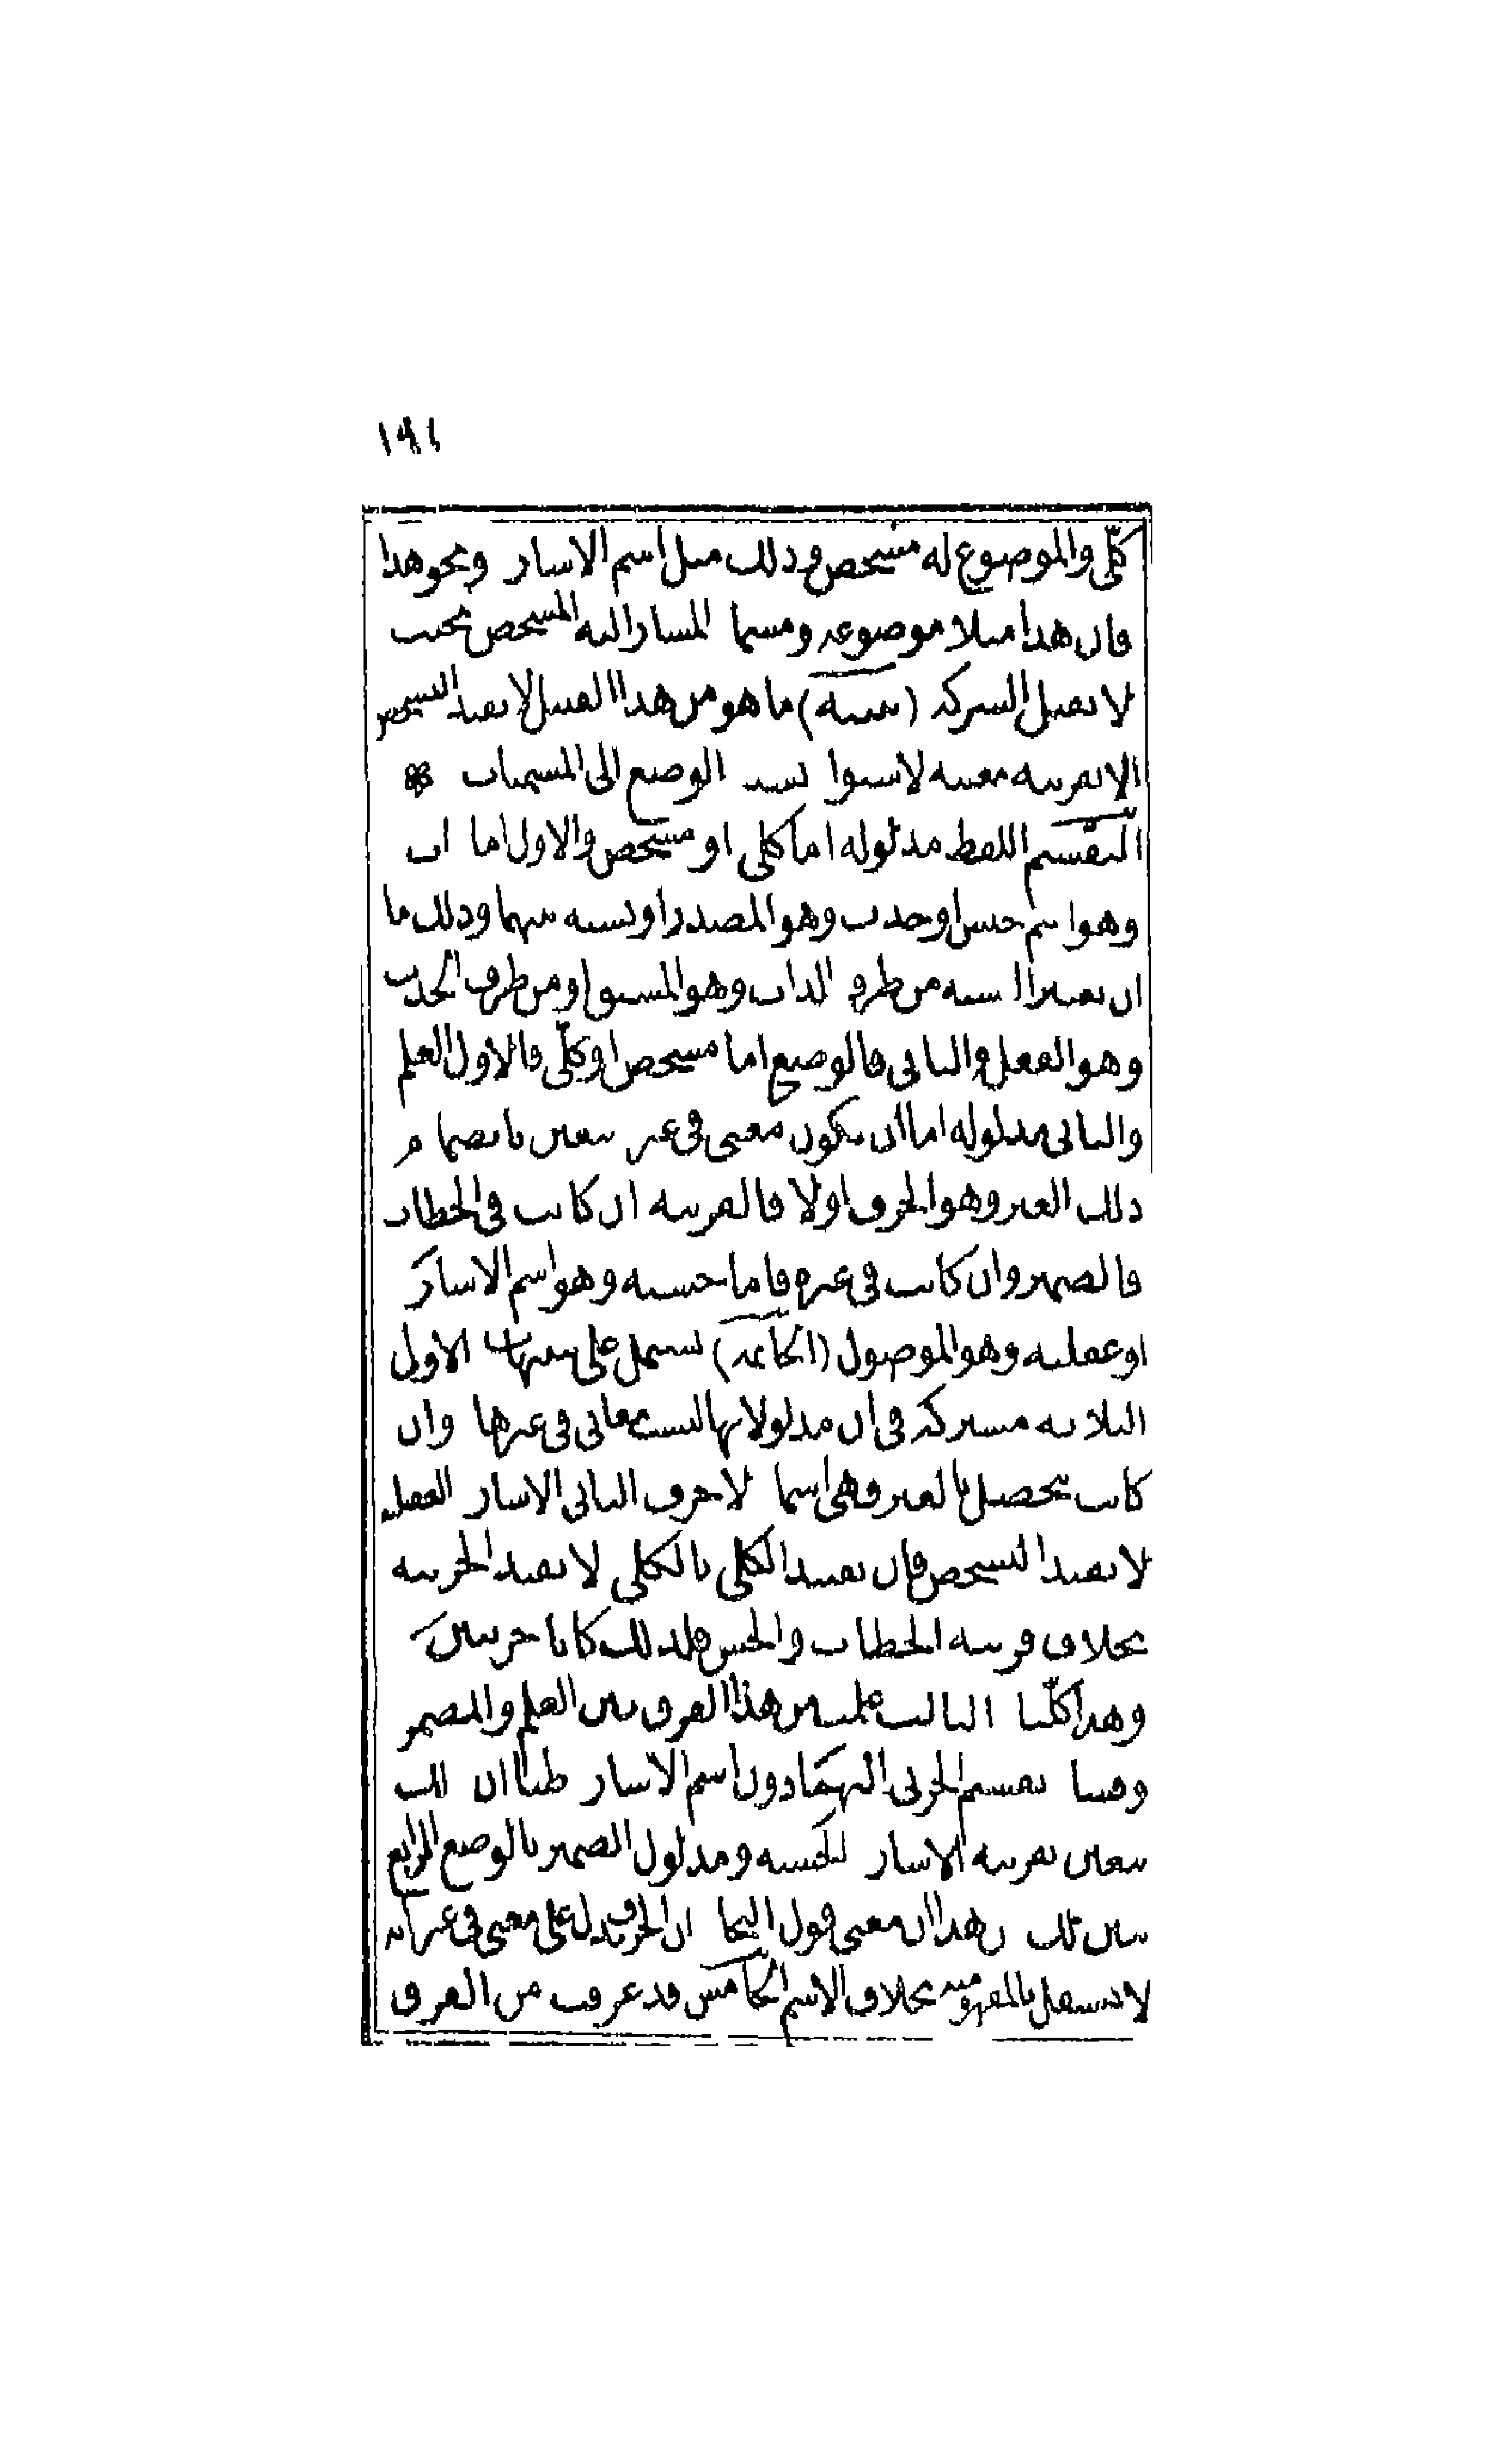 ١٩١
كلّي والموضوع له مشخص وذلك مثل اسم الاشارة ونحو هذا
فان هذا مثلا موضوعه ومسماه المشار اليه المشخص بحيث
لا يقبل الشركة (تنبيه) ما هو من هذا القبيل لا يفيد التشخص
الا بقرينه معينه لاستواء نسبة الوضع الى المسميات
التقسيم اللفظ مدلوله اما كلي او مشخص والاول اما ذات
وهو اسم جنس او حدث وهو المصدر او نسبه بينهما وذلك اما
ان يعتبر النسبه من طرف الذات وهو المشتق او من طرف الحدث
وهو الفعل والثاني فالوضع اما مشخص او كلّي فالاول العلم
والثاني مدلوله اما ان يكون معنى في غيره يتعين بانضمام
ذلك الغير وهو الحرف او لا فالقرينه ان كانت في الخطاب
فالضمير وان كانت في غيره فاما حسيه وهو اسم الاشارة
او عقليه وهو الموصول (الخاتمة) تشتمل على تنبيهات الاول
الثلاثه مشتركة في ان مدلولاتها ليست معاني في غيرها وان
كانت تتحصل بالغير فهي اسماء لا حروف الثاني الاشارة العقليه
لا تفيد التشخص فان تقييد الكلي بالكلي لا يفيد الجزئيه
بخلاف قرينه الخطاب والحس فلذلك كانا جزئيين
وهذا كلّيا الثالث علمت من هذا الفرق بين العلم والمضمر
وفساد تقسيم الجزئي اليهما دون اسم الاشارة ظنا ان ذلك
يتعين بقرينه الاشارة الحسيه ومدلول الضمير بالوضع الرابع
تبين لك بهذا ان معنى قول النحاة ان الحرف يدل على معنى في غيره انه
لا يستقل بالمفهوميه بخلاف الاسم الخامس قد عرفت من الفرق